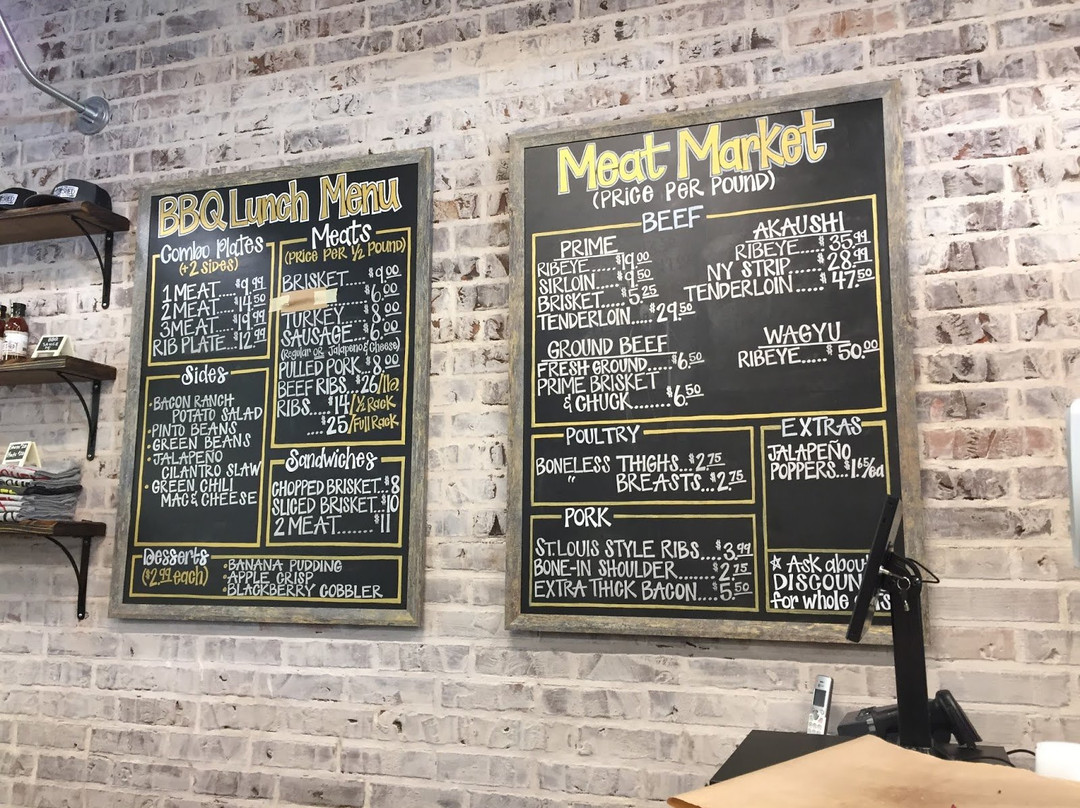 BBQ Lunch Menu
Combo Plates
(+2 sides)
1 MEAT....$9.99
2 MEAT....$14.50
3 MEAT....$19.99
RIB PLATE...$12.99
Sides
• BACON RANCH
POTATO SALAD
• PINTO BEANS
• GREEN BEANS
• JALAPEÑO
CILANTRO SLAW
• GREEN CHILI
MAC & CHEESE
Meats
(PRICE PER 1/2 POUND)
BRISKET....$9.00
$6.00
TURKEY....$8.00
SAUSAGE...$6.00
(Regular OR Jalapeno & Cheese)
PULLED PORK..$8.00
BEEF RIBS..$26/lb
RIBS....$14/½ Rack
....$25/Full Rack
Sandwiches
CHOPPED BRISKET..$8
SLICED BRISKET..$10
2 MEAT.......$11
Desserts
($2.99 each)
• BANANA PUDDING
• APPLE CRISP
• BLACKBERRY COBBLER
Meat Market
(PRICE PER POUND)
BEEF
PRIME
RIBEYE....$19.00
SIRLOIN...$9.50
BRISKET....$5.25
TENDERLOIN....$29.50
AKAUSHI
RIBEYE....$35.99
NY STRIP....$28.99
TENDERLOIN.....$47.50
GROUND BEEF
FRESH GROUND.....$6.50
PRIME BRISKET
& CHUCK.......$6.50
WAGYU
RIBEYE....$50.00
POULTRY
BONELESS THIGHS...$2.75
" BREASTS...$2.75
EXTRAS
JALAPEÑO
POPPERS...$1.65/ea
PORK
ST. LOUIS STYLE RIBS....$3.99
BONE-IN SHOULDER.......$2.75
EXTRA THICK BACON....$5.50
☆ Ask about
DISCOUN
for whole